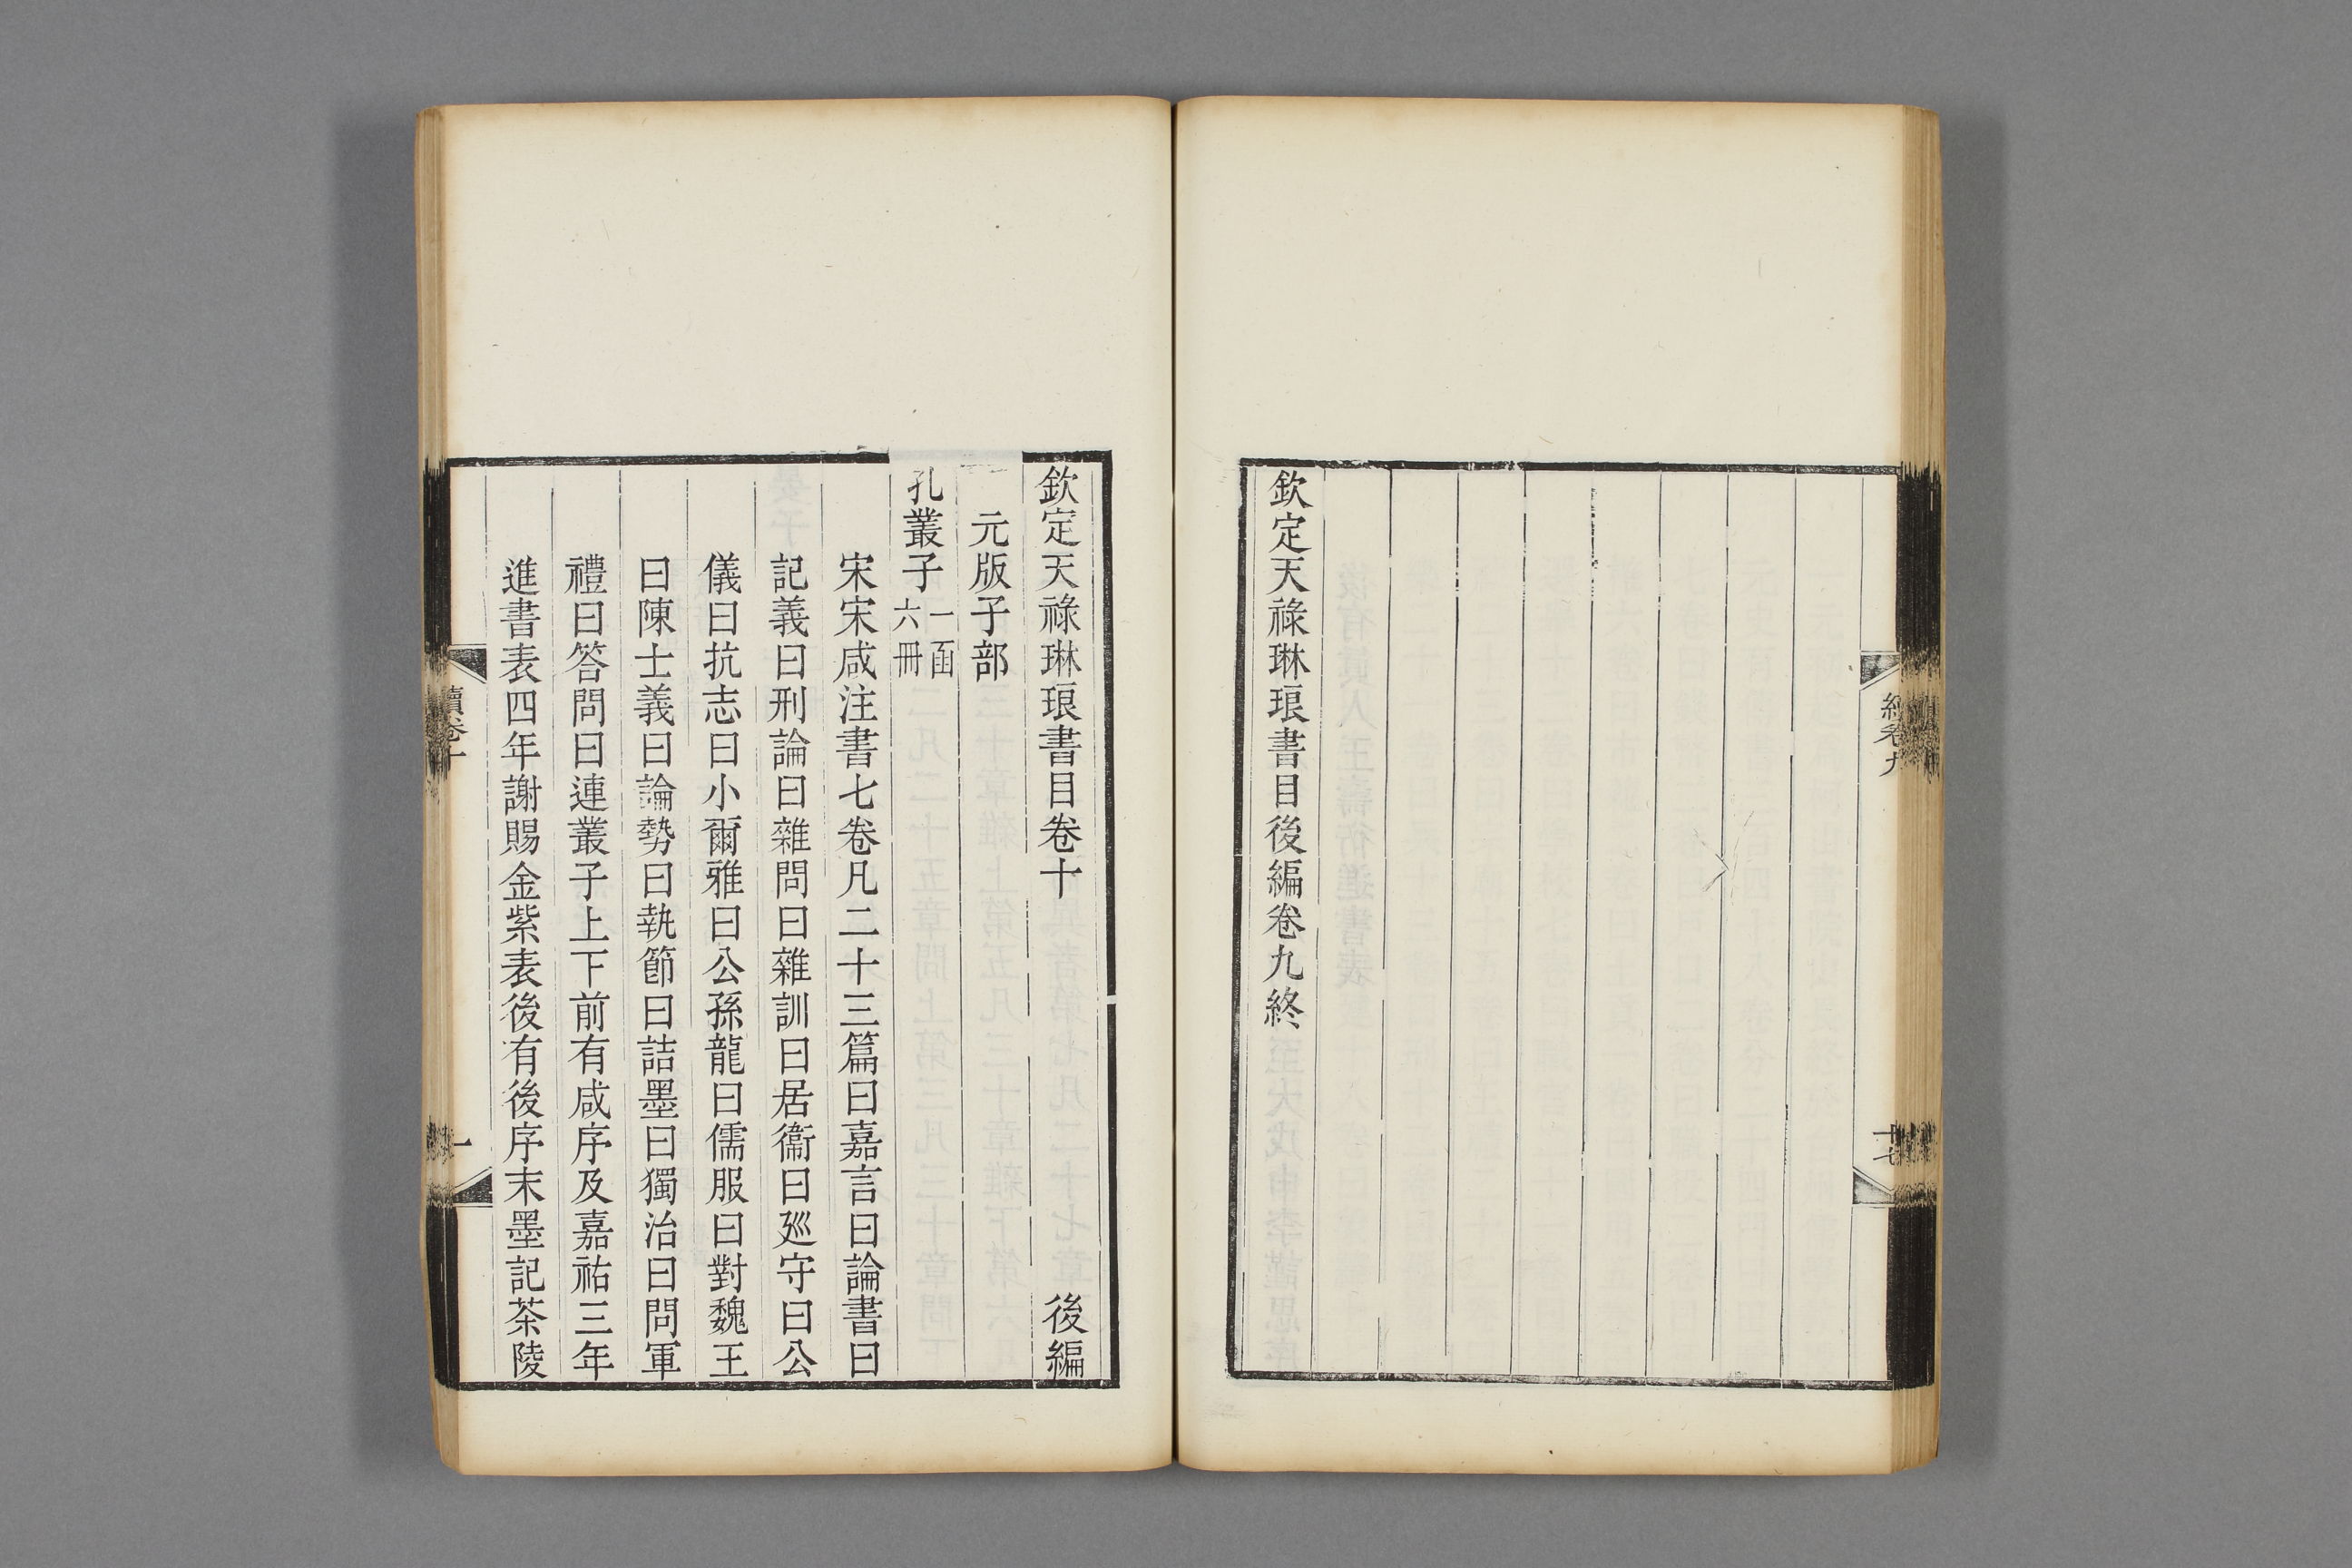 欽定天祿琳琅書目後編卷九終
十七
欽定天祿琳琅書目卷十　後編
元版子部
孔叢子一函六冊
宋宋咸注書七卷凡二十三篇曰嘉言曰論書曰
記義曰刑論曰雜問曰雜訓曰居衞曰廵守曰公
儀曰抗志曰小爾雅曰公孫龍曰儒服曰對魏王
曰陳士義曰論勢曰執節曰詰墨曰獨治曰問軍
禮曰答問曰連叢子上下前有咸序及嘉祐三年
進書表四年謝賜金紫表後有後序末墨記茶陵